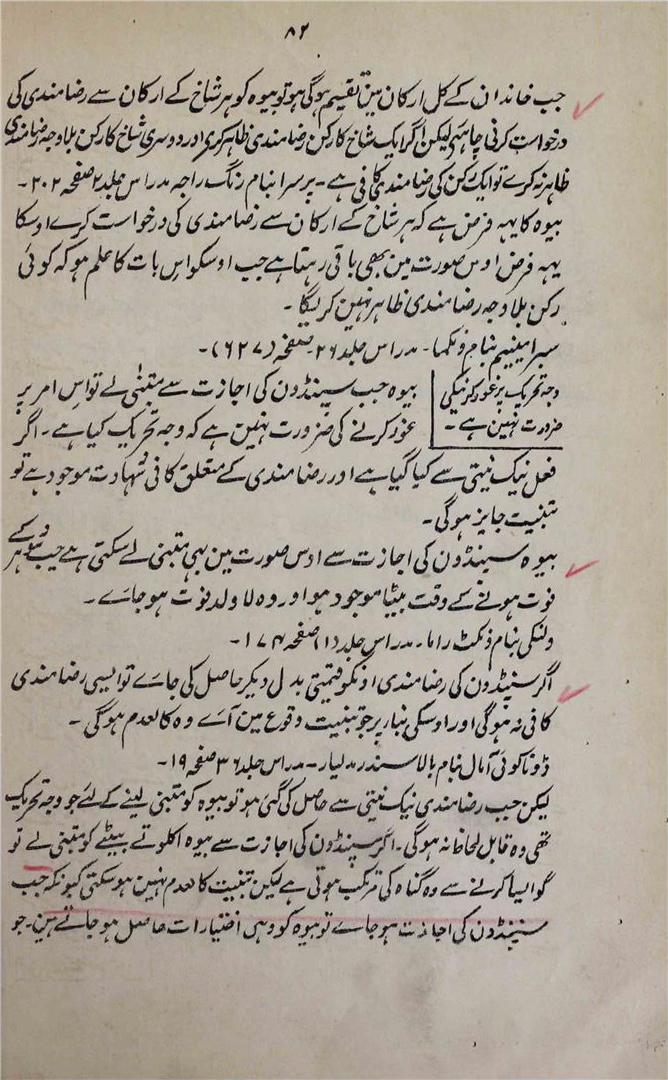 ۸۲
جب خاندان کے کل ارکان مین تقسیم ہوگی ہو تو بیوہ کو ہر شاخ کے ارکان سے رضامندی کی
درخواست کرنی چاہئے لیکن اگر ایک شاخ کا رکن رضامندی ظاہر کری اور دوسری شاخ کا رکن بلا وجہ رضامندی
ظاہر نہ کرے تو ایک رکن کی رضامندی کافی ہے ۔ پر سرا بنام رنگ راجہ مدراس جلد ۲ صفحہ ۲۰۲ ۔
بیوہ کا یہہ فرض ہے کہ ہر شاخ کے ارکان سے رضامندی کی درخواست کرے اوسکا
یہہ فرض اوس صورت مین بھی باقی رہتا ہے جب اوسکو اس بات کا علم ہو کہ کوئی
رکن بلا وجہ رضامندی ظاہر نہین کریگا ۔
سبرامینیم بنام ونکما ۔ مدراس جلد ۲۶ صفحہ (۶۲۷) ۔
وجہ تحریک پر غور کرنیکی
ضرورت نہین ہے ۔
بیوہ جب سپنڈون کی اجازت سے متبنیٰ لے تو اس امر پر
غور کرنے کی ضرورت نہین ہے کہ وجہ تحریک کیا ہے ۔ اگر
فعل نیک نیتی سے کیا گیا ہے اور رضامندی کے متعلق کافی شہادت موجود ہے تو
تبنیت جایز ہوگی ۔
بیوہ سپنڈون کی اجازت سے اوس صورت مین بہی متبنی لے سکتی ہے جب شوہر کے
فوت ہونے کے وقت بیٹا موجود ہو اور وہ لا ولد فوت ہو جاے ۔
ولنکی بنام ونکٹ راما ۔ مدراس جلد (۱) صفحہ ۱۷۴ ۔
اگر سپنڈون کی رضامندی اونکو قیمتی بدل دیکر حاصل کی جاے تو ایسی رضامندی
کافی نہ ہوگی اور اوسکی بنا پر جو تبنیت وقوع مین آے وہ کالعدم ہوگی ۔
ڈونا کوئی آمال بنام بالا سندر مدلیار ۔ مدراس جلد ۳۶ صفحہ ۱۹ ۔
لیکن جب رضامندی نیک نیتی سے حاصل کی گئی ہو تو بیوہ کو متبنی لینے کے لئے جو وجہ تحریک
تھی وہ قابل لحاظ نہ ہوگی ۔ اگر سپنڈون کی اجازت سے بیوہ اکلوتے بیٹے کو متبنی لے تو
گو ایسا کرنے سے وہ گناہ کی مرتکب ہوتی ہے لیکن تبنیت کالعدم نہین ہو سکتی کیونکہ جب
سپنڈون کی اجازت ہو جاے تو بیوہ کو وہی اختیارات حاصل ہو جاتے ہین ۔ جو